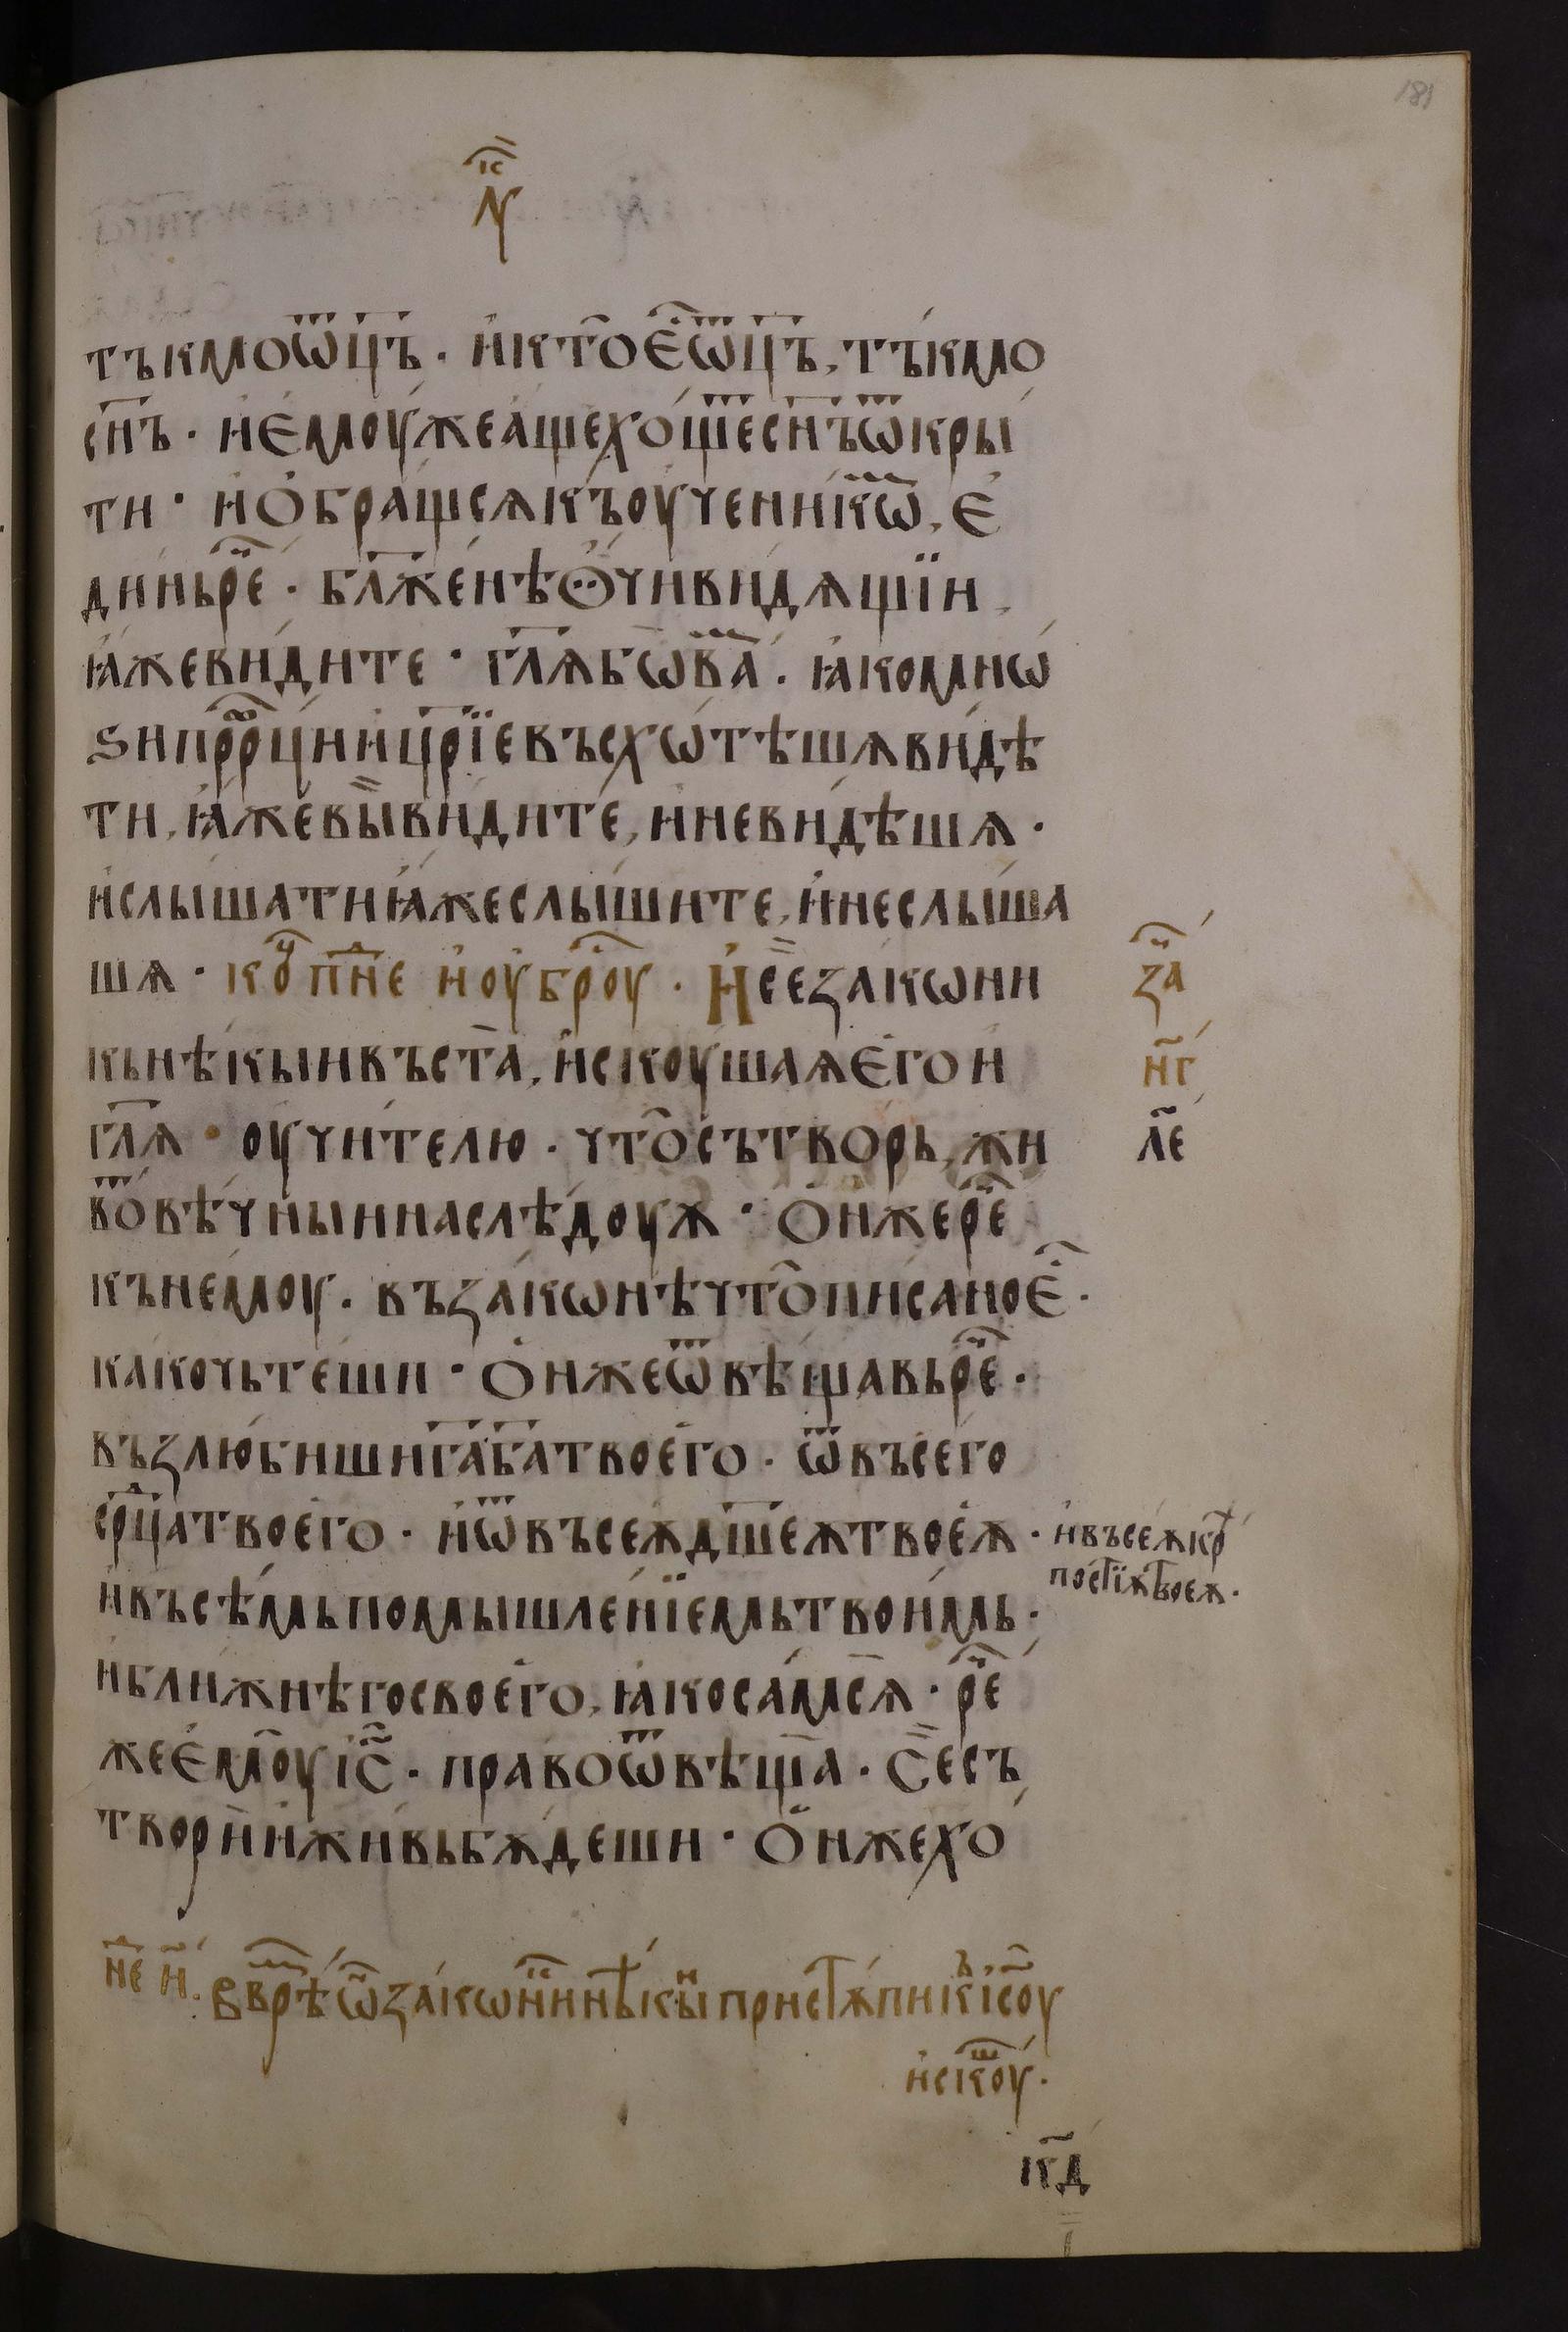 181
тъкмоѿц҃ъ· и҆кто҆е҆ѿц҃ъ, тъ́кмо
сн҃ъ· и҆е҆моу́жеа́щехо́щⷮесн҃ъѿкры́
ти· и҆ѻ҆бра́щсѧкъоу҆чени́кѡⷨ, е҆
ди́ньреⷱ҇· бл҃же́нѣѻ҆́чиви́дѧщїи,
ꙗ҆́жеви́дите· гл҃ѧбѡваⷨ· ꙗ҆́комнѡ́
ѕипррⷪ҇ции҆цр҃їевъсхѡтѣ́шѧви́дѣ
ти, ꙗ҆́жевы̏ви́дите, и҆неви́дѣшѧ·
и҆слы́шатиꙗ҆́жеслы́шите, и҆неслы́ша
шѧ· коуⷰ҇ пнⷣе и҆оубрⷪ҇оу· И҆сѐзако́нни
кьнѣкы́ивъста̀, и҆скоуша́ѧе҆гои҆
гл҃ѧ· оу҆чи́телю· что̀сътво́рь, жи
вⷮовѣ́чныинаслѣ́доуѫ· Ѻ҆́нжереⷱ҇
кънемоу· възако́нѣчто̀пи́саное҆ⷭ҇·
ка́кочьте́ши· ѻ҆́нжеѿвѣща́вьреⷱ҇·
възлю́бишиг҃аб҃атвоего̀· ѿвъсего
срⷣцатвоего̀· и҆ѿвъсеѧ̀дш҃еѫтвоеѧ̀·
и҆въсѣ́мьпомышле́нїемьтвои́мь·
и҆бли́жнѣгосвоего̀, ꙗ҆́коса́мсѧ· реⷱ҇
жее҆моуі҆с҃· пра́воѿвѣща̀· С҆есъ
твори̏и҆жи́вьбѫ́деши· Ѻ҆́нжехо́
за
нг
ле
и҆въсеѧкрⷣѣ
по́стїѫтвоеѫ·
нⷣе и҃· Ввⷬ҇рѣѡ҆ⷩзако́нницинѣкы̏и̏присTѫпик҆ъі҆с҃оу
и҆скоуⷲ·
к҃д